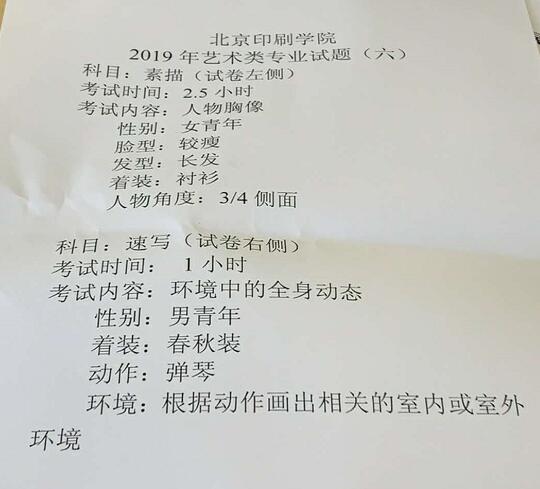 北京印刷学院
2019 年艺术类专业试题（六）
科目：素描（试卷左侧）
考试时间：2.5 小时
考试内容：人物胸像
性别：女青年
脸型：较瘦
发型：长发
着装：衬衫
人物角度：3/4 侧面
科目：速写（试卷右侧）
考试时间： 1 小时
考试内容：环境中的全身动态
性别：男青年
着装：春秋装
动作：弹琴
环境：根据动作画出相关的室内或室外
环境